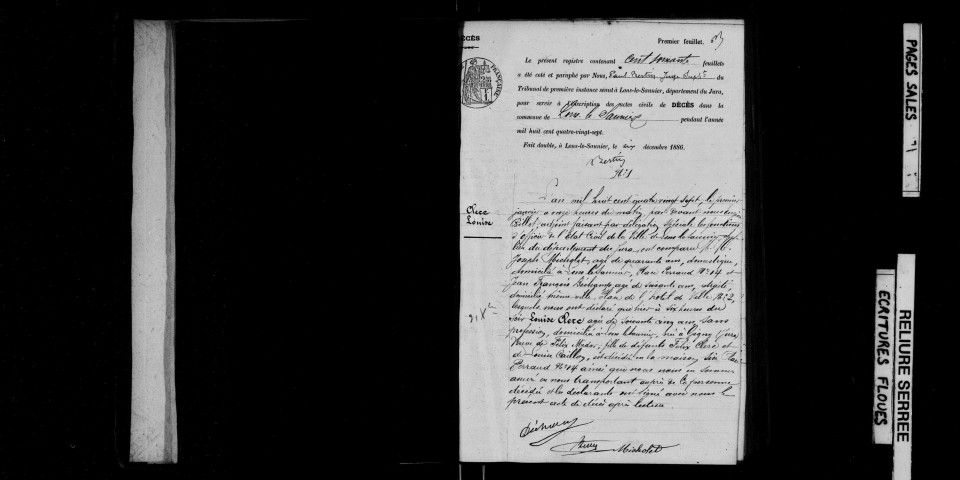 DÉCÈS
Premier feuillet.
Le présent registre contenant Cent soixante feuillets
a été coté et paraphé par Nous, Juge Suplt du
Tribunal de première instance séant à Lons-le-Saunier, département du Jura,
pour servir à l'inscription des actes civils de DÉCÈS dans la
commune de Lons le Saunier pendant l'année
mil huit cent quatre-vingt-sept.
Fait double, à Lons-le-Saunier, le six décembre 1886.
No 1
Clerc
Louise
L'an mil huit cent quatre vingt sept, le premier
janvier à onze heures du matin, par devant nous
Billot, adjoint faisant par délégation spéciale les fonctions
d'officier de l'état civil de la ville de Lons le Saunier,
lieu du département du Jura, ont comparu
Joseph Michelot, agé de quarante ans, domestique,
domicilié à Lons le Saunier, Place Perraud No 14 et
Jean François agé de soixante ans,
domicilié même ville, Place de l'hotel de Ville No 2,
lesquels nous ont déclaré que hier à six heures du
soir Louise Clerc agée de soixante cinq ans, sans
profession, domiciliée à Lons le Saunier, née à Gigny (Jura)
Veuve de Félix, fille de défunts Félix Clerc et
de Louise, est décédée en la maison sise Place
Perraud No 14 ainsi que nous nous en sommes
assuré en nous transportant auprès de la personne
décédée et les déclarants ont signé avec nous le
présent acte de décès après lecture.
Michelot
PAGES SALES
RELIURE SERREE
ECRITURES FLOUES